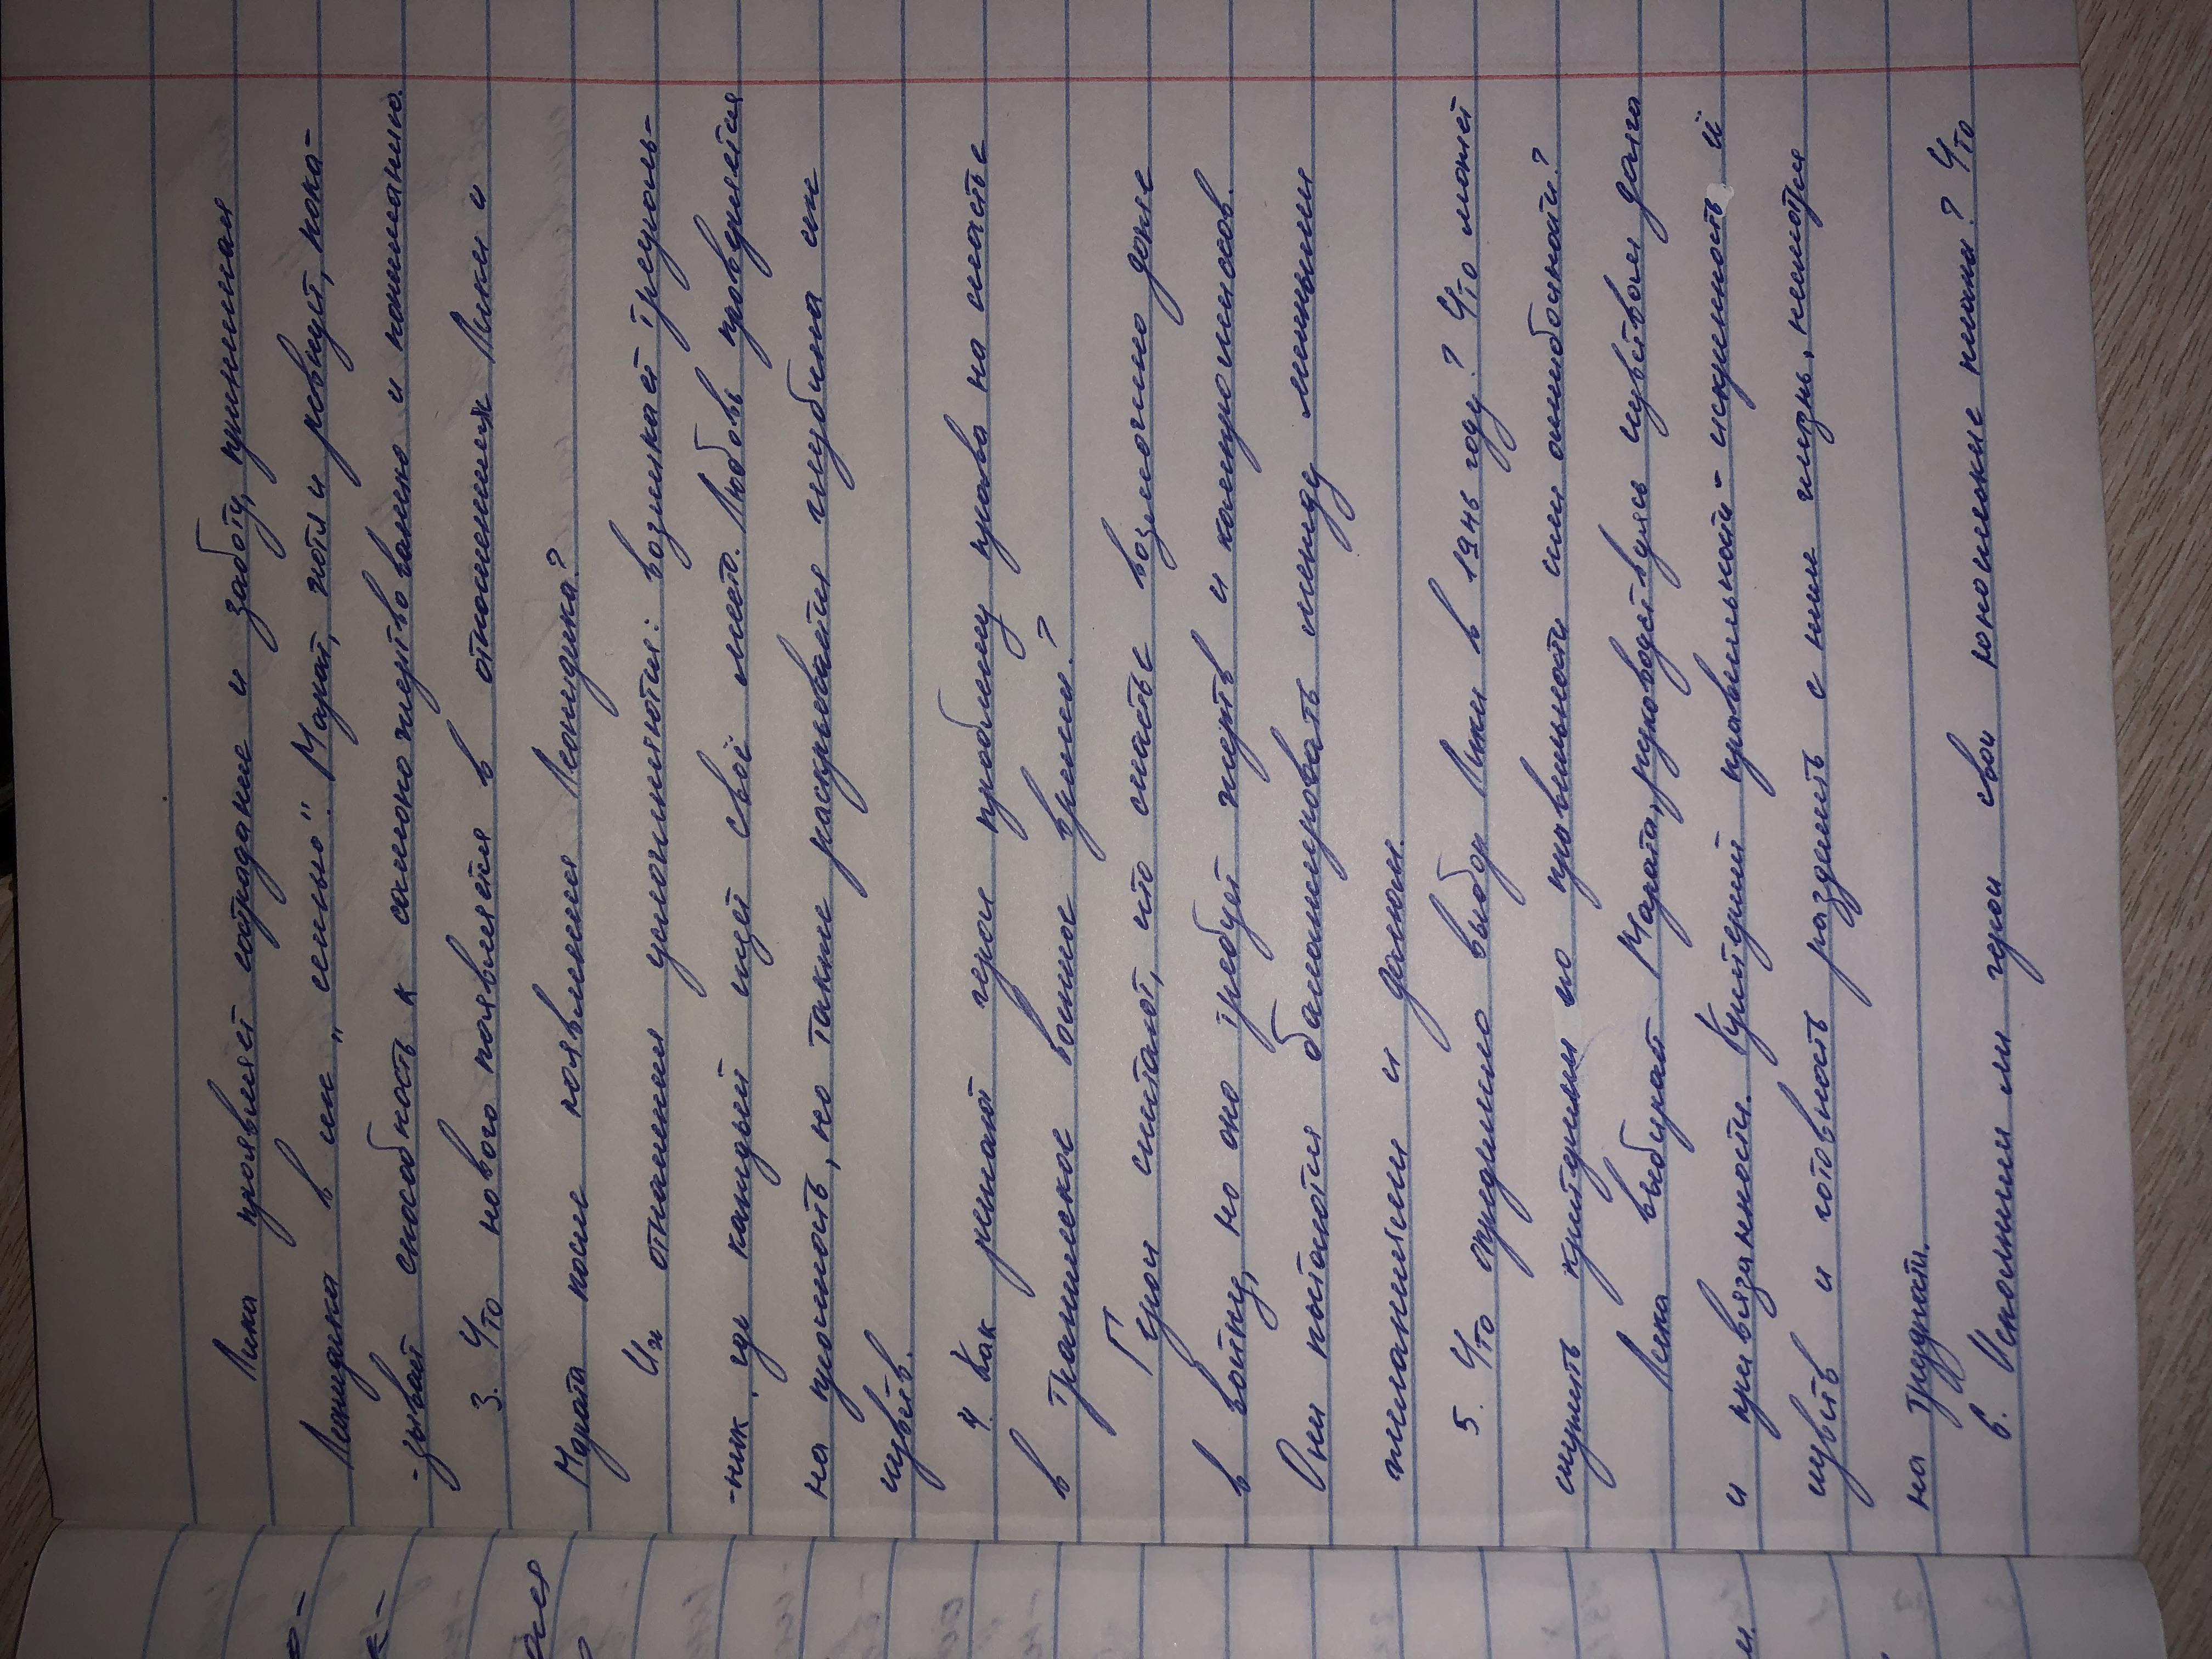 Лика проявляет сострадание и заботу, принимая
Леонидика в их „семью". Марат, хотя и ревнует, пока-
-зывает способность к самопожертвованию и пониманию.
3. Что нового появляется в отношениях Лики и
Марата после появления Леонидика?
Их отношения усложняются: возникает треуголь-
-ник, где каждый ищет своё место. Любовь проверяется
на прочность, но также раскрывается глубина их
чувств.
4. Как решают герои проблему права на счастье
в трагическое военное время?
Герои считают, что счастье возможно даже
в войну, но оно требует жертв и компромиссов.
Они пытаются балансировать между личными
желаниями и долгом.
5. Что определило выбор Лики в 1946 году? Что может
служить критерием его правильности или ошибочности?
Лика выбирает Марата, руководствуясь чувством долга
и привязанности. Критерий правильности - искренность её
чувств и готовность разделить с ним жизнь, несмотря
на трудности.
6. Исполнили ли герои свои юношеские планы? Что